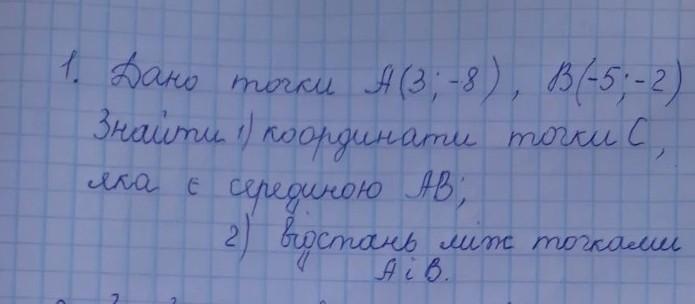 1. Дано точки A(3;-8), B(-5;-2)
Знайти 1) координати точки C,
яка є серединою AB;
2) відстань між точками
A і B.